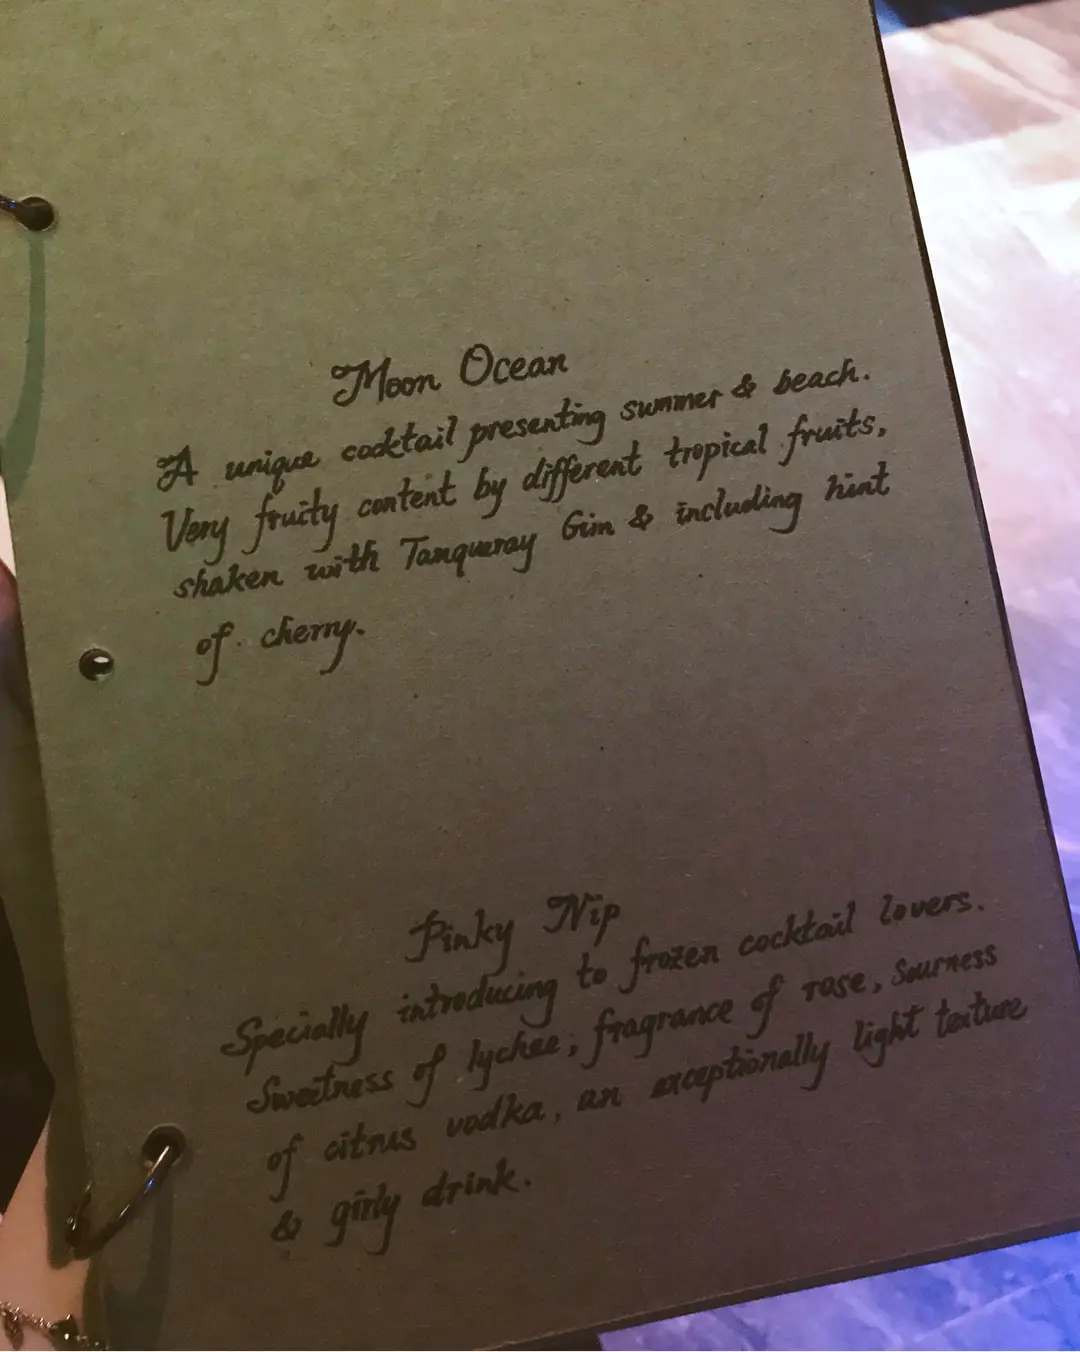 Moon Ocean
A unique cocktail presenting summer & beach.
Very fruity content by different tropical fruits,
shaken with Tanqueray Gin & including hint
of cherry.
Pinky Nip
Specially introducing to frozen cocktail lovers.
Sweetness of lychee, fragrance of rose, Sourness
of citrus vodka, an exceptionally light texture
& girly drink.